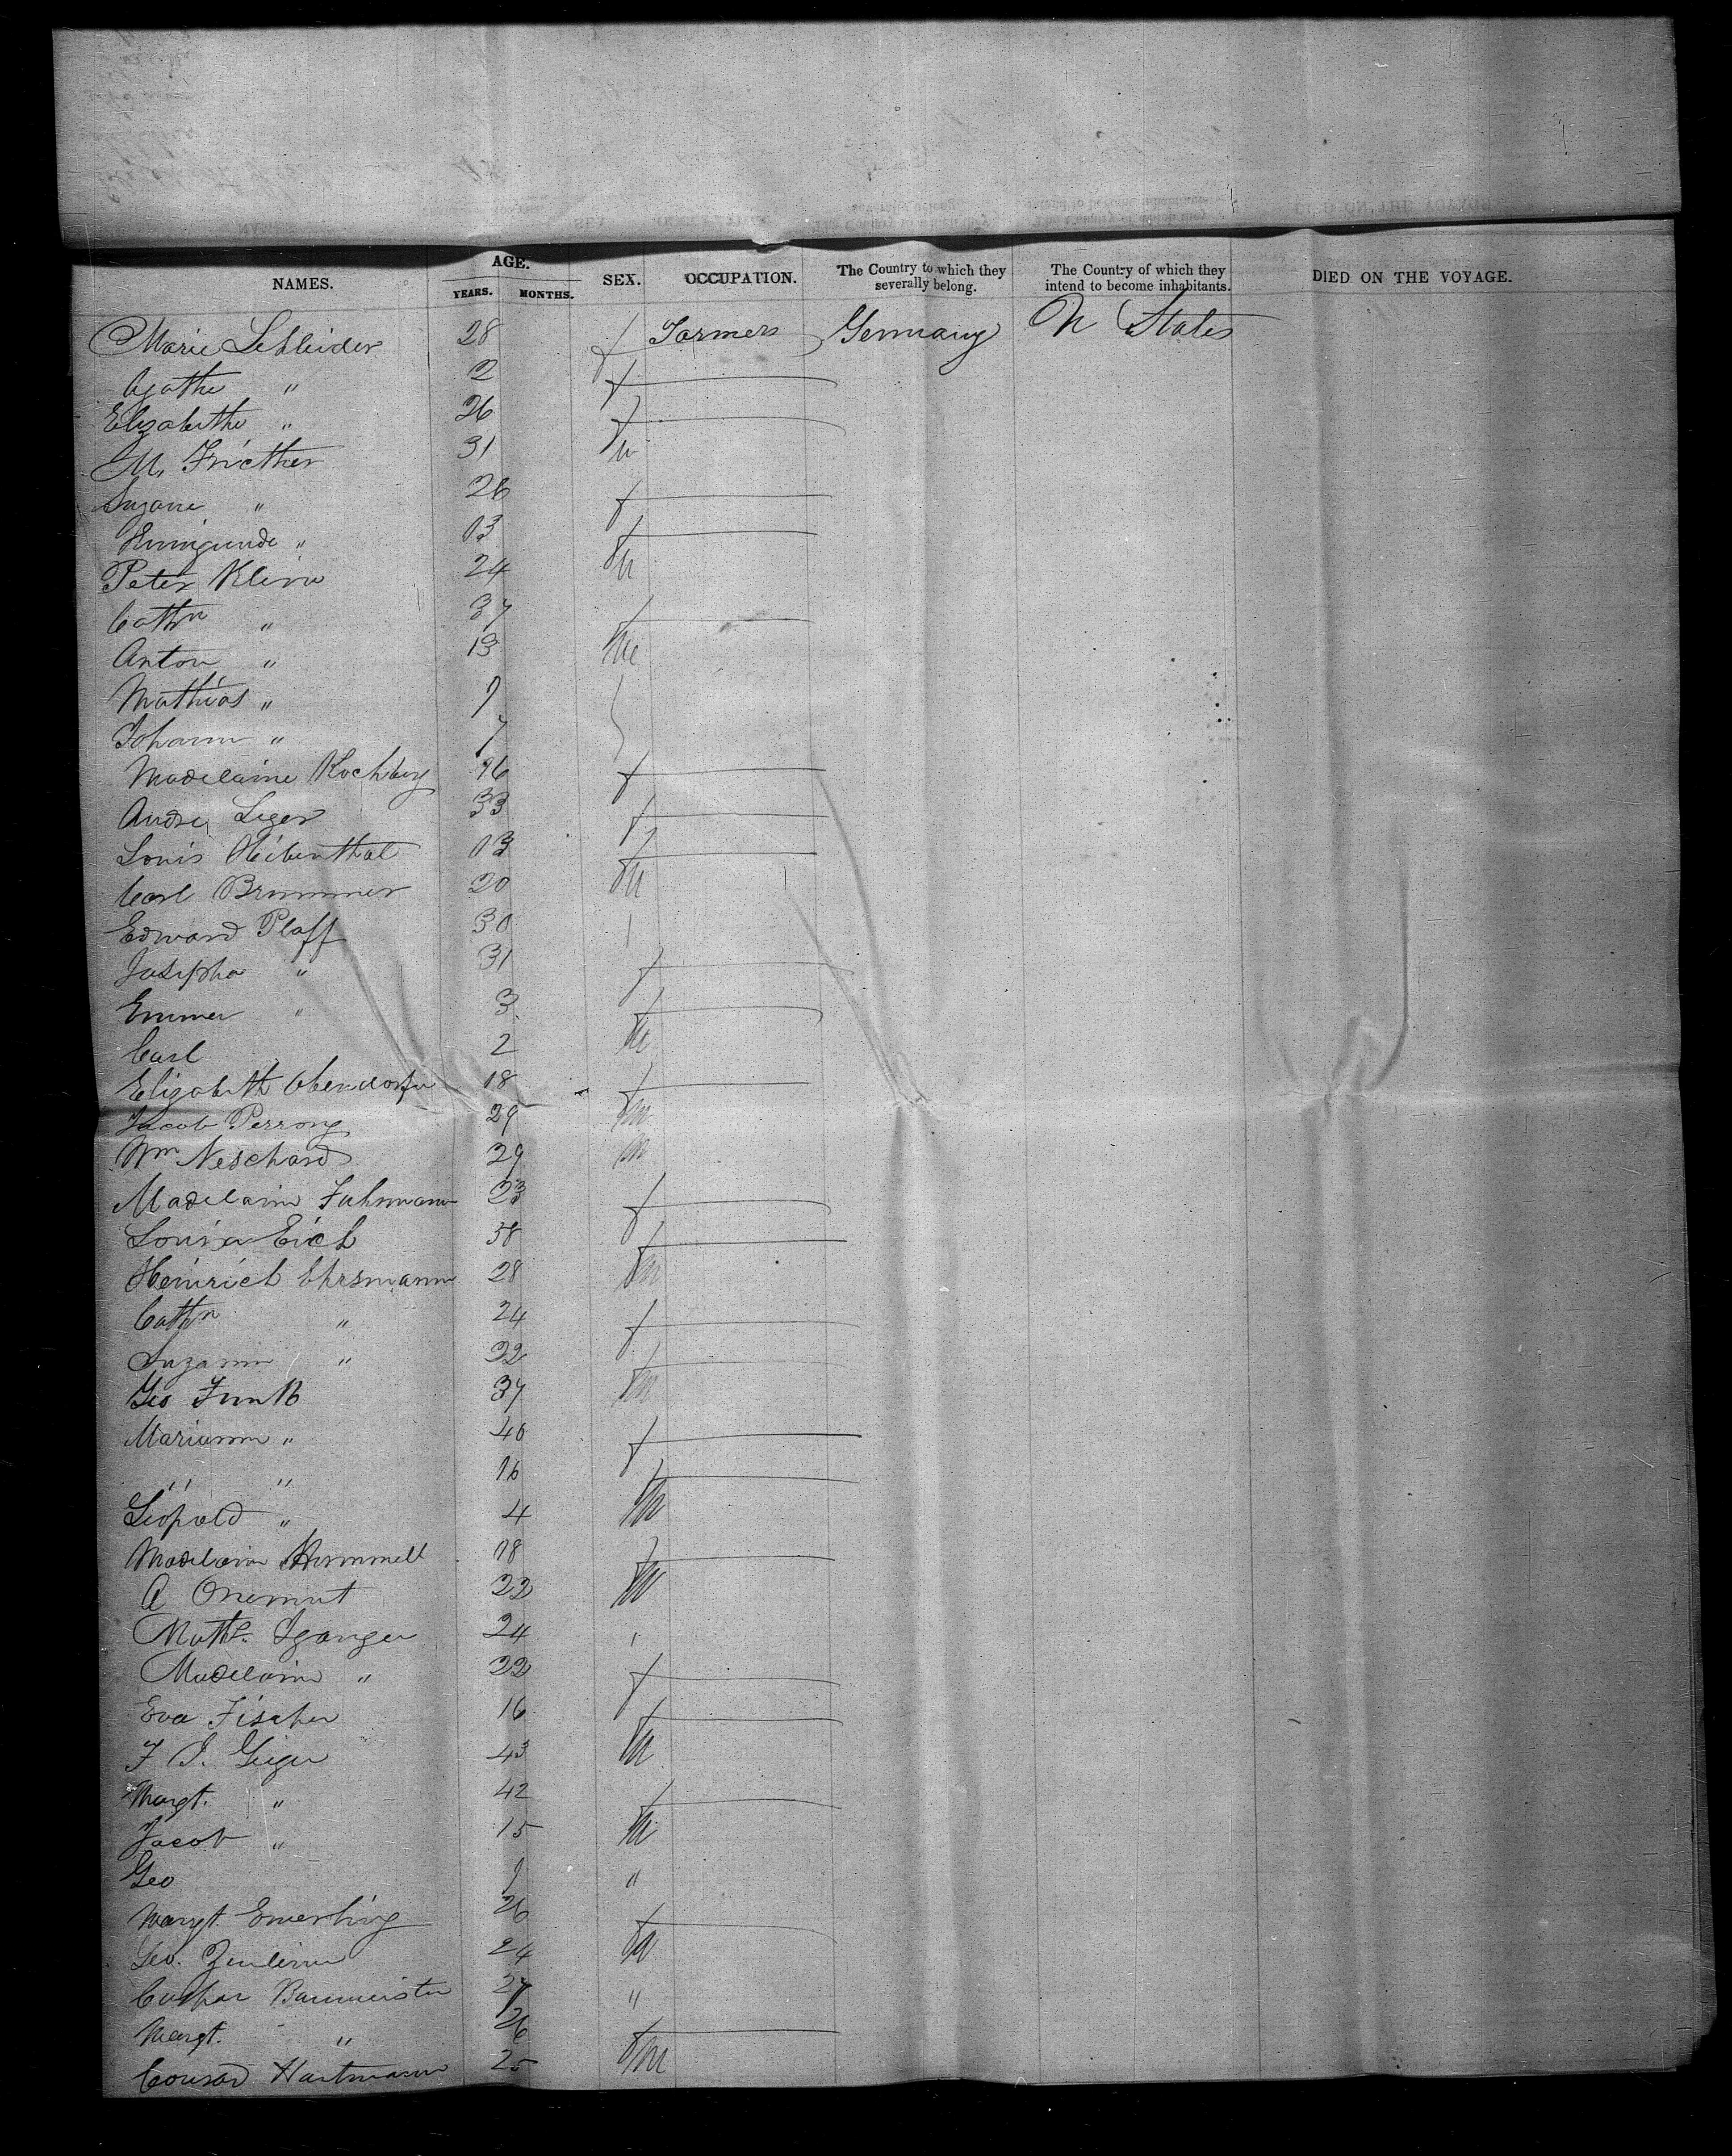 NAMES. AGE. YEARS. MONTHS. SEX. OCCUPATION. The Country to which they severally belong. The Country of which they intend to become inhabitants. DIED ON THE VOYAGE.
Marie Schleider 28 f Farmers Germany U States
Agathe " 2 f
Elizabethe " 26 f
M. Fricther 31 m
Suzane " 26 f
" 13 f
Peter Klein 24 m
Cathn " 37 f
Anton " 13 m
Mathias " 9
Johann " 7
Madelaine Kochberg 16 f
Andre Leger 33 f
Louis 13 f
Carl Brummer 20 m
Edward Plaff 30
Josepha " 31 f
Emma " 3 f
Carl 2 m
Elizabeth Obendorfer 18 f
Jacob Perrong 29 m
Wm Neschard 29 m
Madelaine Fuhrmann 23 f
Louisa Eich 38 f
Heinrich Ehrsmann 28 m
Cathn " 24 f
Suzann " 32 f
Geo Funk 37 m
Mariann " 40 f
" " 16 f
Leopold " 4 m
Madelain Hummell 18 f
A 22 m
Math. 24 "
Madelain " 22 f
Eva Fischer 16 f
F J. Geiger 43 m
Margt. " 42 f
Jacob " 15 m
Geo 9 "
Margt. Emerling 26 f
Geo. 24 m
Caspar Baumeister 27 "
Margt. " 26 f
Conrad Hartmann 25 m